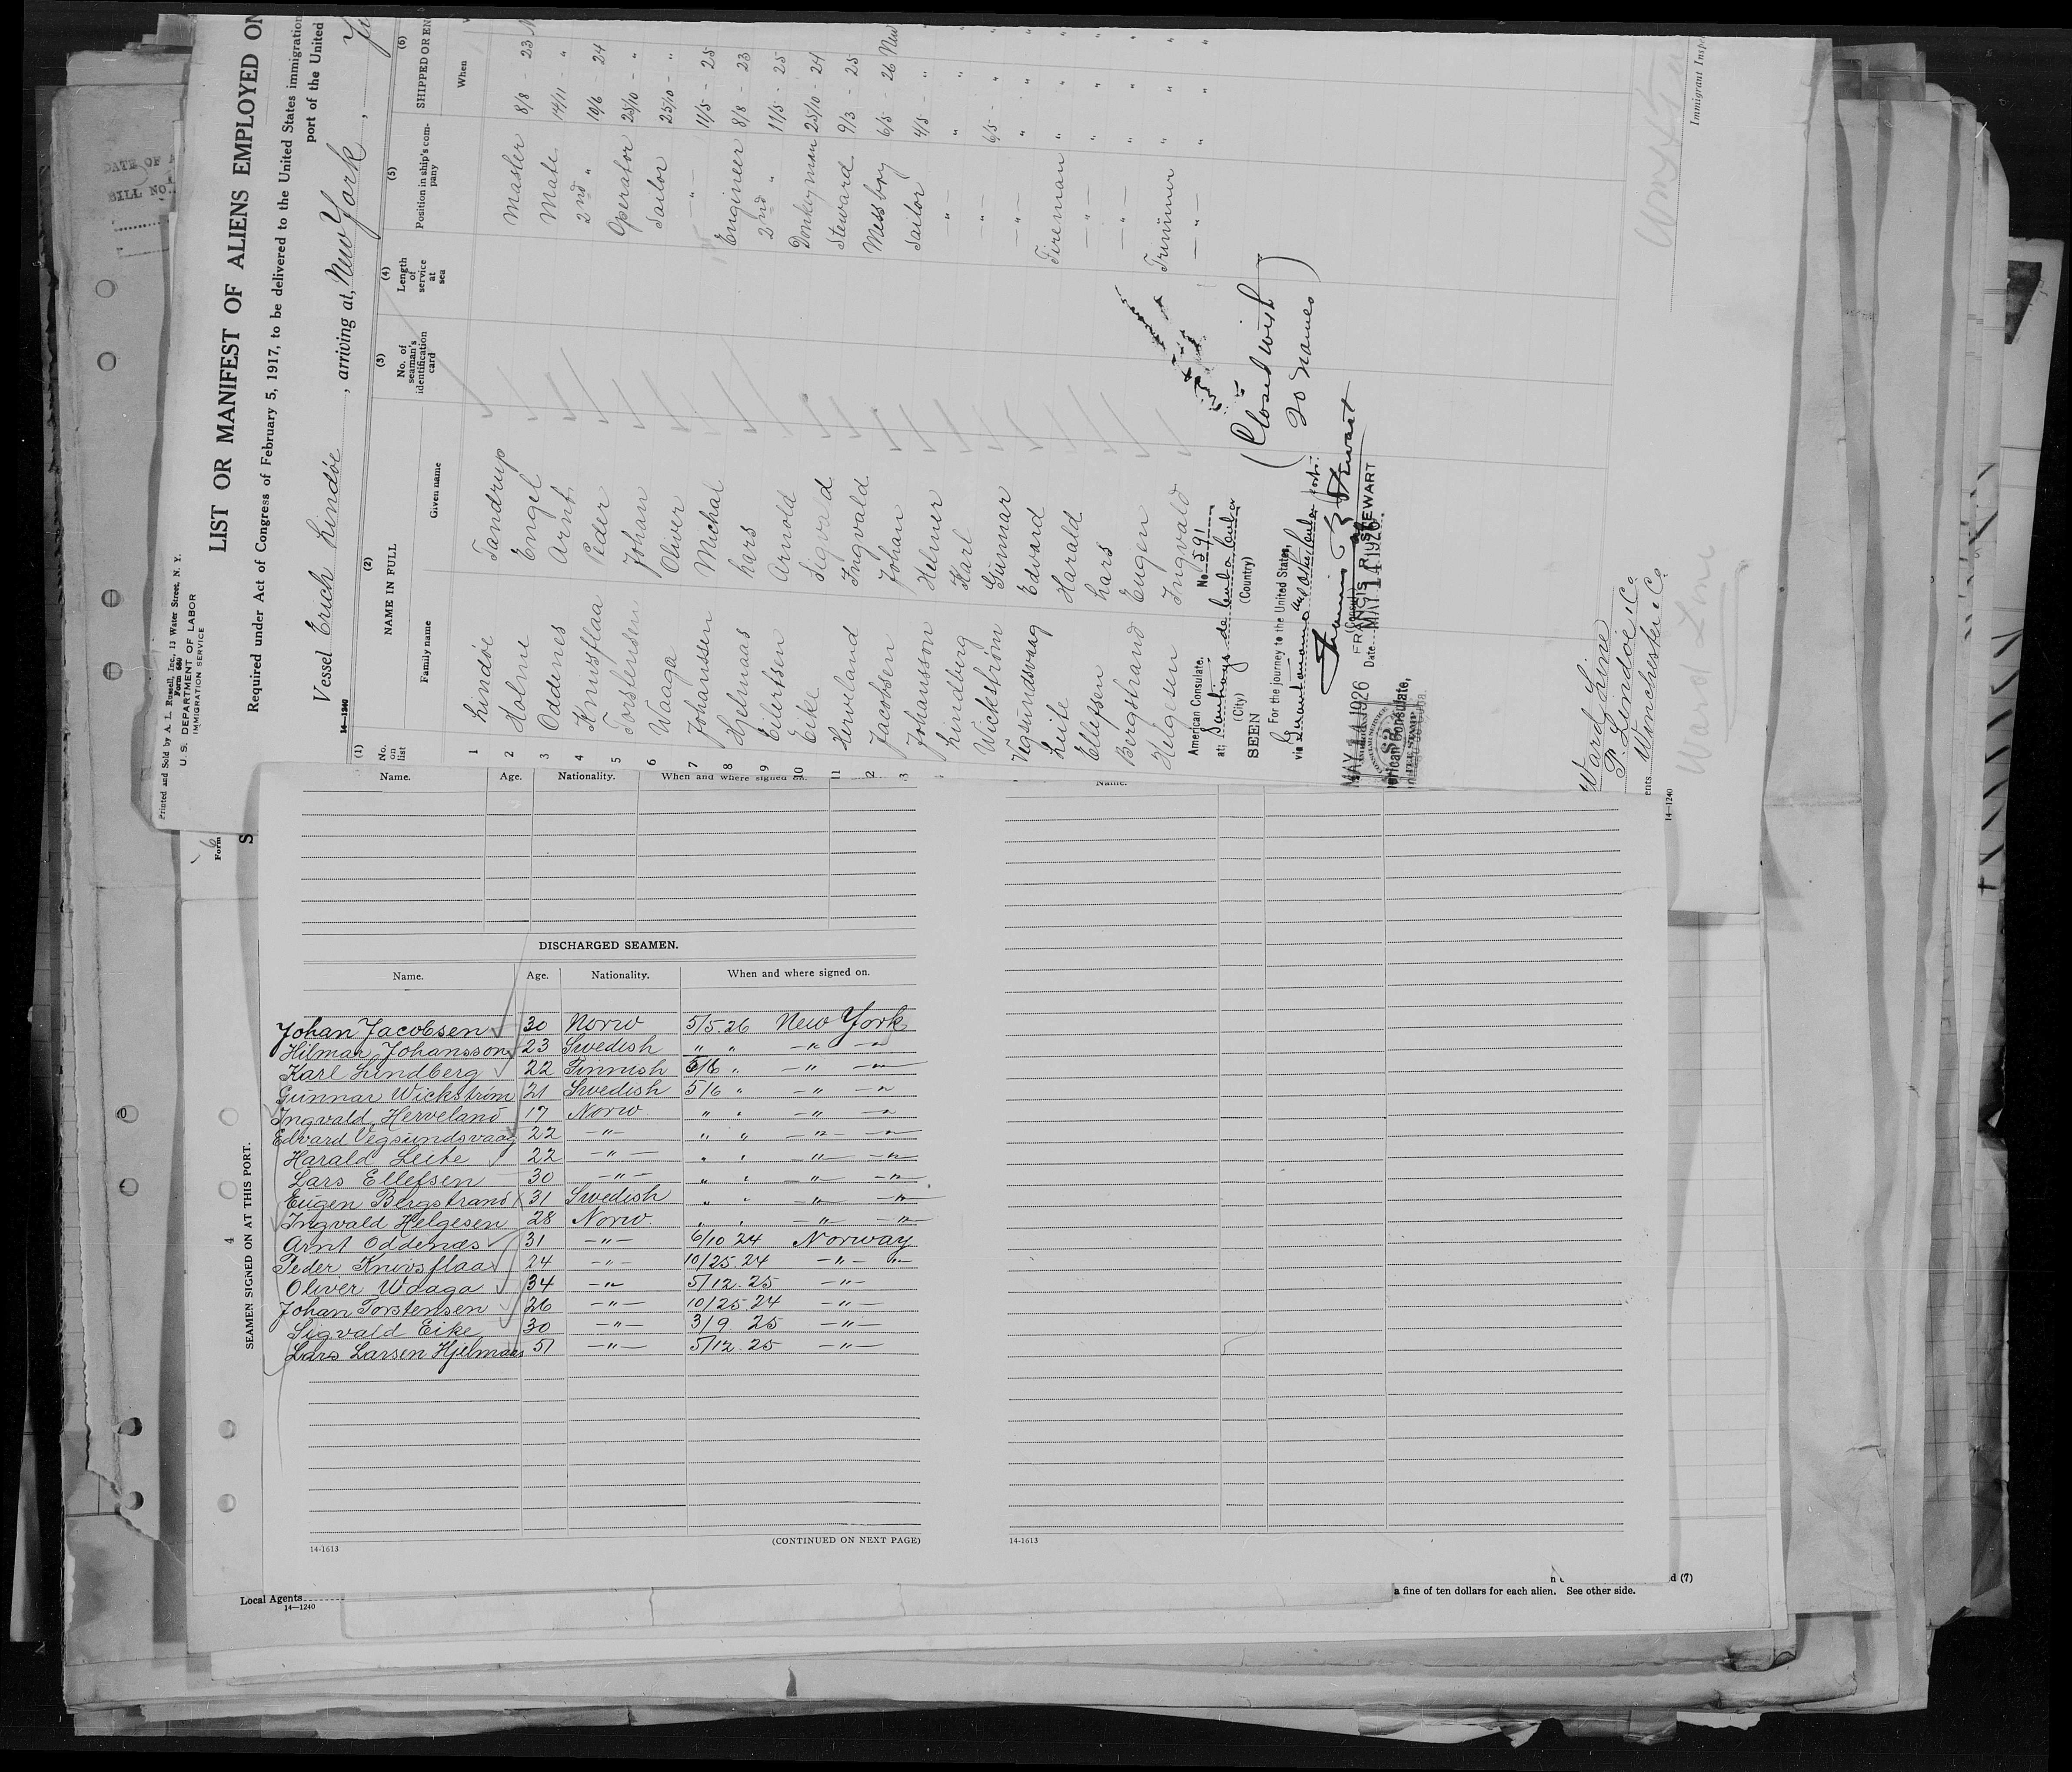 Printed and Sold by A. L. Russell, Inc., 13 Water Street, N. Y.
Form 680
U. S. DEPARTMENT OF LABOR
IMMIGRATION SERVICE
LIST OR MANIFEST OF ALIENS EMPLOYED ON
Required under Act of Congress of February 5, 1917, to be delivered to the United States immigration
port of the United
Vessel Erich Lindöe, arriving at, New York,
14—1240
(1) (2) (3) (4) (5) (6)
No. on list
NAME IN FULL
Family name Given name
No. of seaman's identification card
Length of service at sea
Position in ship's company
SHIPPED OR EN
When
1 Lindöe Tandrup Master 8/8 - 23
2 Holme Engel Mate 14/11 - "
3 Oddenes Arnt 2nd " 10/6 - 24
4 Knivsflaa Peder Operator 25/10 - "
5 Torstensen Johan Sailor 25/10 - "
6 Waaga Oliver - " - 11/5 - 25
7 Johanssen Michal Engineer 8/8 - 23
8 Hjelmaas Lars 2nd " 11/5 - 25
9 Eilertsen Arnold Donkeyman 25/10 - 24
10 Eike Sigvald Steward 9/3 - 25
11 Herveland Ingvald Messboy 6/5 - 26 New
2 Jacobsen Johan Sailor 4/5 - "
3 Johansson Helmer - " - "
Lindberg Karl - " - 6/5 - "
Wickström Gunnar - " - "
Vegsundsvaag Edvard Fireman "
Leite Harald - " - "
Ellefsen Lars - " - "
Bergstrand Eugen Trimmer "
Helgesen Ingvald - " - "
American Consulate.
at; Santiago de Cuba Cuba
(City) (Country)
No. 591
SEEN
For the journey to the United States,
via
(Closed with
20 names)
(Consul)
FRANCIS R. STEWART
Date MAY 14 1926
MAY 14 1926
American Consulate,
Ward Line
P. Lindöe & Co
Winchester & Co
ents
14—1240
Ward Line
Immigrant Inspe
DATE OF
BILL NO.
Form
S
Name. Age. Nationality. When and where signed on.
Name.
DISCHARGED SEAMEN.
Name. Age. Nationality. When and where signed on.
Johan Jacobsen 30 Norw 5/5.26 New York
Hilmar Johansson 23 Swedish " " - " - - " -
Karl Lindberg 22 Finnish 5/6 " - " - - " -
Gunnar Wickström 21 Swedish 5/6 " - " - - " -
Ingvald Herveland 17 Norw " " - " - - " -
Edvard Vegsundsvaag 22 - " - " " - " - - " -
Harald Leite 22 - " - " " - " - - " -
Lars Ellefsen 30 - " - " " - " - - " -
Eugen Bergstrand 31 Swedish " " - " - - " -
Ingvald Helgesen 28 Norw. " " - " - - " -
Arnt Oddenæs 31 - " - 6/10 24 Norway
Peder Knivsflaa 24 - " - 10/25.24 - " - "
Oliver Waaga 34 - " - 5/12.25 - " -
Johan Torstensen 26 - " - 10/25.24 - " -
Sigvald Eike 30 - " - 3/9 25 - " -
Lars Larsen Hjelmaas 51 - " - 5/12.25 - " -
4
SEAMEN SIGNED ON AT THIS PORT.
14-1613
(CONTINUED ON NEXT PAGE)
14-1613
d (7)
Local Agents
a fine of ten dollars for each alien. See other side.
14—1240